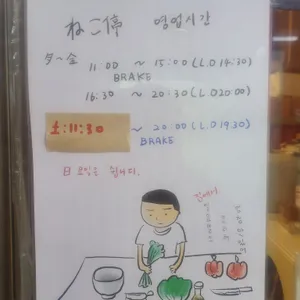 ねこ停 영업시간
夕~金 11:00 ~ 15:00 (L.O 14:30)
BRAKE
16:30 ~ 20:30 (L.O 20:00)
土:11:30 ~ 20:00 (L.O 19:30)
BRAKE
日 요일은 쉽니다.